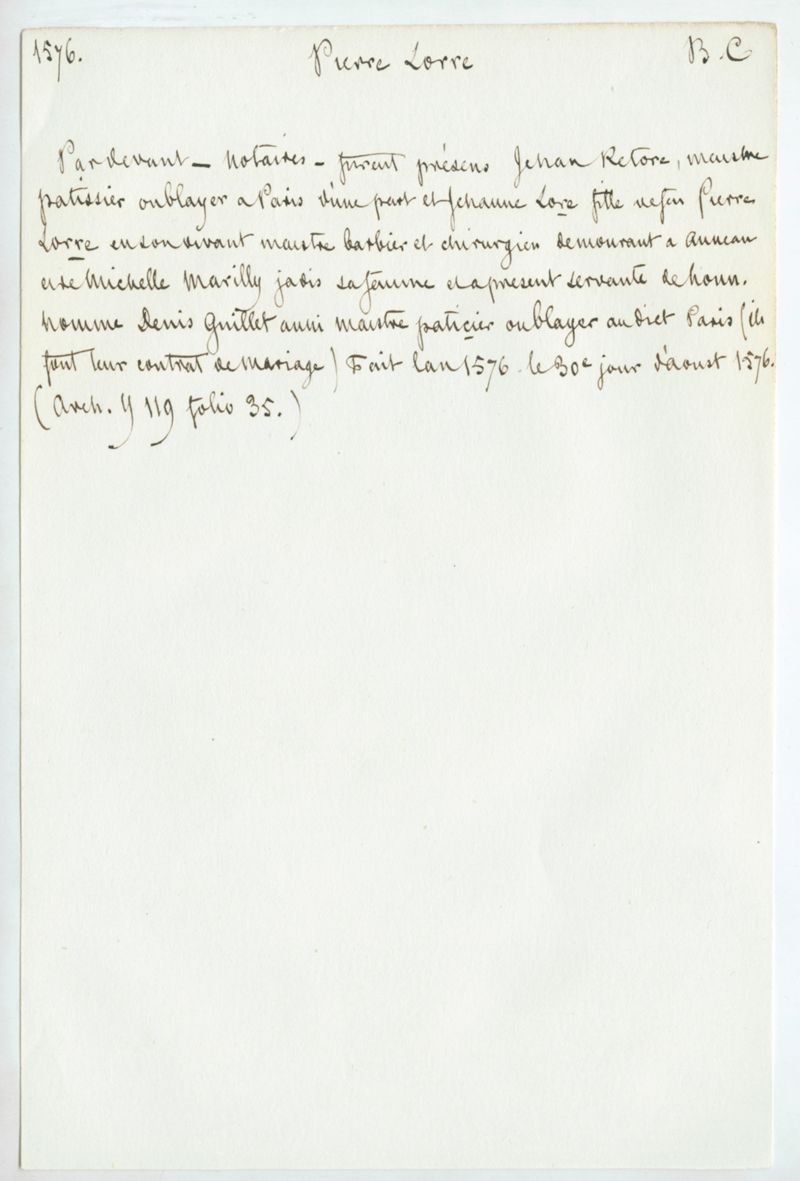 1576. Pierre Lorre B. C
Pardevant — notaires — furent présens Jehan Retore, maistre
patissier oublayer a Paris d'une part et Jehanne Lore fille de feu Pierre
Lorre en son vivant maistre barbier et chirurgien demourant a Auneau
et de Michelle Marilly jadis sa femme et a present servante de honn.
homme Denis Guillet aussi maistre paticier oublayer audict Paris (ils
font leur contrat de mariage) Fait lan 1576 . le 30e jour d'aoust 1576.
(Arch. Y 119 folio 35.)